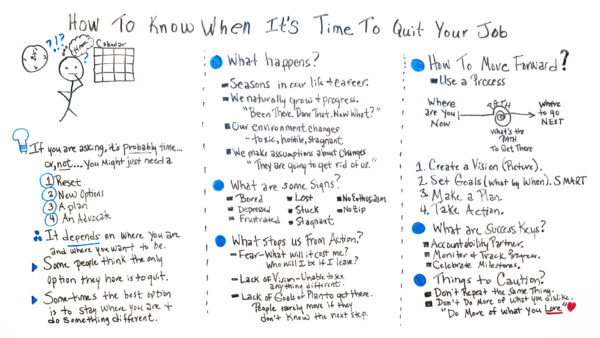 How To Know When It's Time To Quit Your Job
?!?
Hmmm
?
Calendar
If you are asking, it's probably time...
or, not.... You Might just need a
1 Reset
2 New Options
3 A plan
4 An Advocate
It depends on where you are
and where you want to be.
Some people think the only
option they have is to quit.
Some-times the best option
is to stay where you are &
do something different.
What happens?
Seasons in our life & career.
We naturally grow & progress.
"Been There. Done That. Now What?"
Our environment changes
- toxic, hostile, stagnant
We make assumptions about changes
"They are going to get rid of us."
What are some Signs?
Bored
Lost
No Enthosasm
Depressed
Stuck
No Zip
Frustrated
Stagnant
What stops us from Action?
Fear - What will it cost me?
Who will I be if I leave?
Lack of Vision - Unable to see
anything different.
Lack of Goals or Plan to get there.
People rarely move if they
don't know the next step.
How To Move Forward?
Use a Process
Where
are You
Now
PATH
Where
to go
NEXT
What's the
PATH
To Get There
1. Create a Vision (Picture).
2. Set Goals (What by When). SMART
3. Make a Plan.
4. Take Action.
What are Success Keys?
Accountability Partner.
Monitor & Track Progress.
Celebrate Milestones.
Things to Caution?
Don't Repeat the Same Thing.
Don't Do More of what you dislike.
"Do More of What you Love"